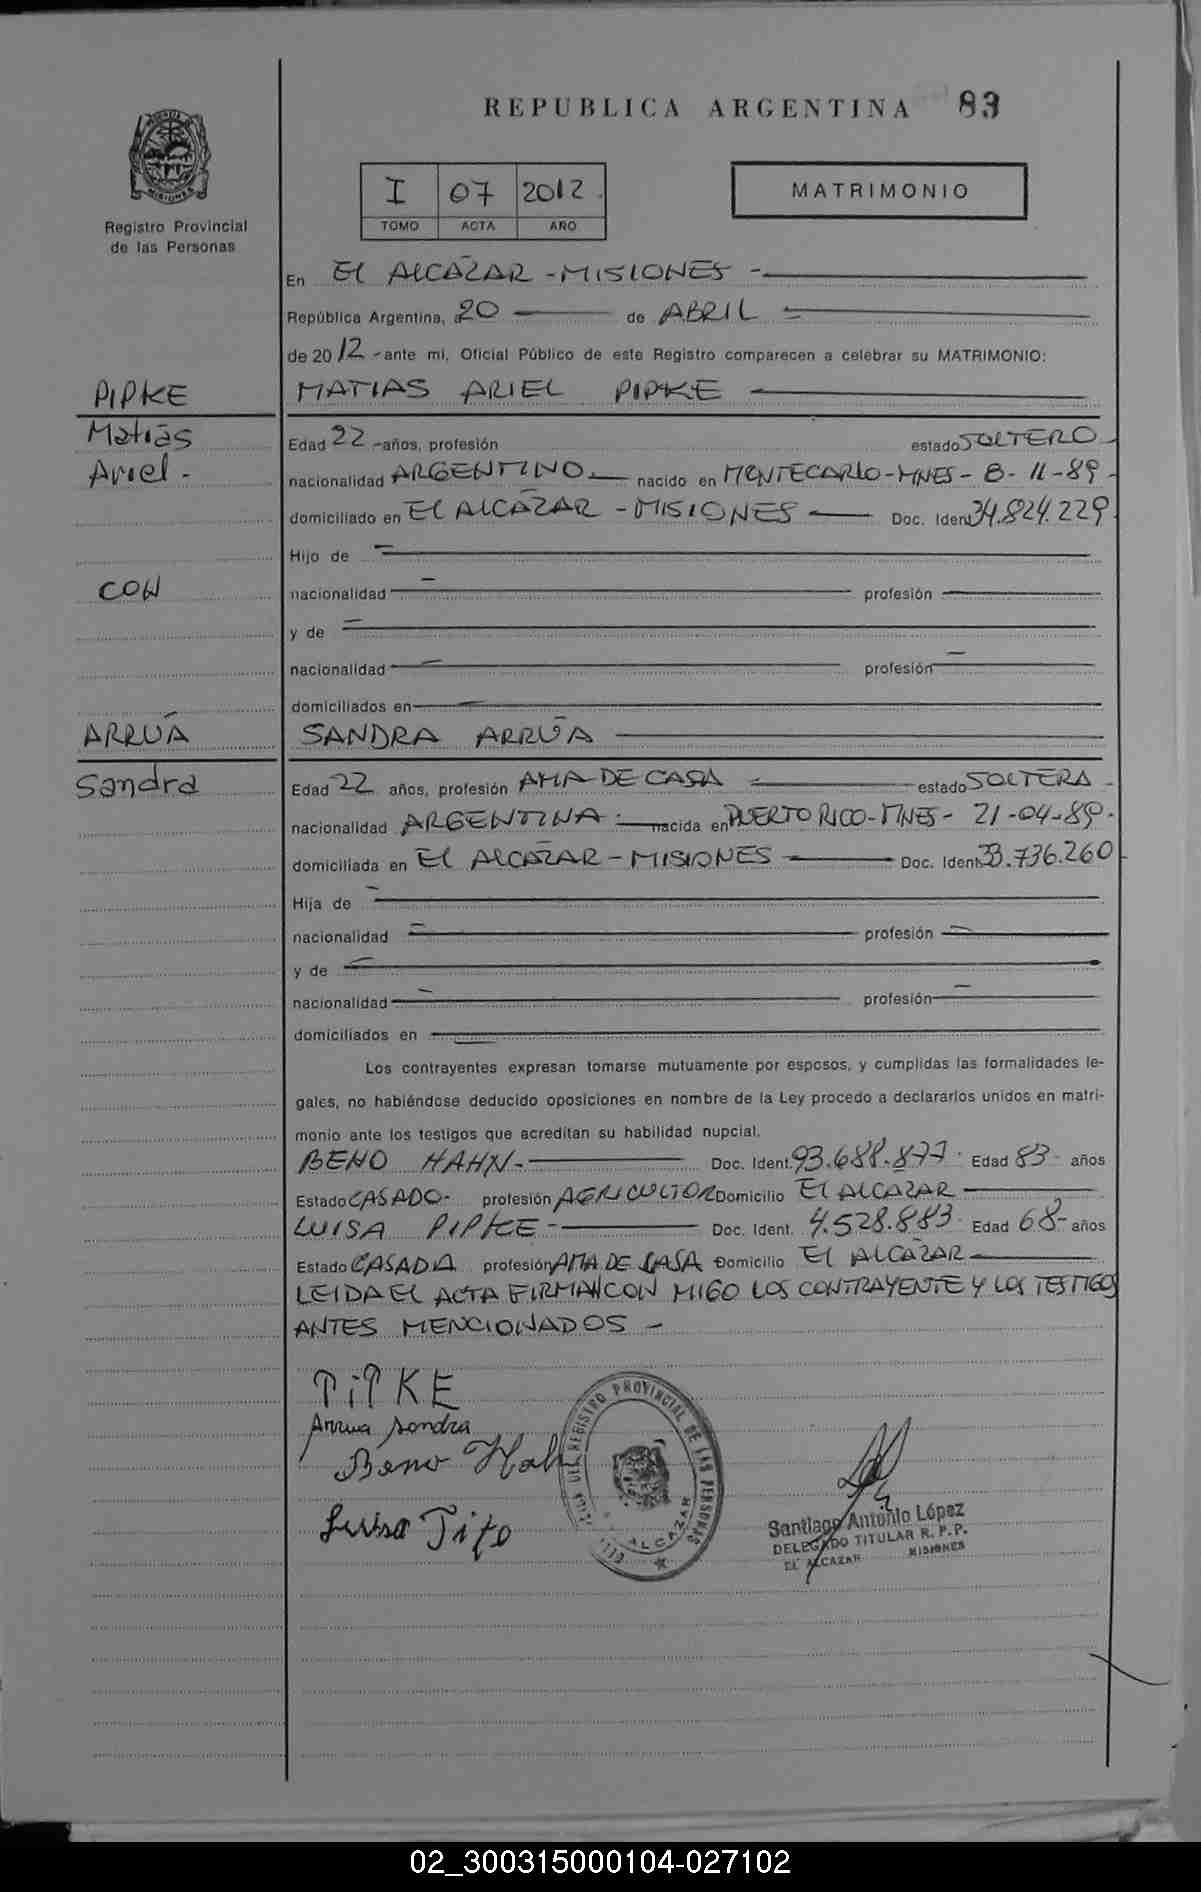 REPUBLICA ARGENTINA 83
I 07 2012
TOMO ACTA AÑO
MATRIMONIO
MISIONES
Registro Provincial
de las Personas
En El ALCAZAR - MISIONES -
República Argentina, a 20 de ABRIL
de 2012 - ante mi, Oficial Público de este Registro comparecen a celebrar su MATRIMONIO:
PIPKE
Matias
Ariel -
CON
ARRUÁ
Sandra
MATIAS ARIEL PIPKE
Edad 22 - años, profesión estado SOLTERO -
nacionalidad ARGENTINO - nacido en MONTECARLO - MNES - 8 - 11 - 89 -
domiciliado en El ALCAZAR - MISIONES Doc. Ident 34.824.229
Hijo de
nacionalidad profesión
y de
nacionalidad profesión
domiciliados en
SANDRA ARRÚA
Edad 22 años, profesión AMA DE CASA estado SOLTERA -
nacionalidad ARGENTINA nacida en PUERTO RICO - MNES - 21 - 04 - 89 -
domiciliada en El ALCAZAR - MISIONES Doc. Ident. 33.736.260
Hija de
nacionalidad profesión
y de
nacionalidad profesión
domiciliados en
Los contrayentes expresan tomarse mutuamente por esposos, y cumplidas las formalidades le-
gales, no habiéndose deducido oposiciones en nombre de la Ley procedo a declararlos unidos en matri-
monio ante los testigos que acreditan su habilidad nupcial.
BENO HAHN - Doc. Ident. 93.688.877 - Edad 83 - años
Estado CASADO - profesión AGRICULTOR Domicilio El ALCAZAR
LUISA PIPKE - Doc. Ident. 4.528.883 - Edad 68 - años
Estado CASADA profesión AMA DE CASA Domicilio El ALCAZAR
LEIDA EL ACTA FIRMAN CON MIGO LOS CONTRAYENTE Y LOS TESTIGOS
ANTES MENCIONADOS -
PiPKE
Arrua Sandra
Beno Hah
Luisa
REGISTRO PROVINCIAL DE LAS PERSONAS
ALCAZAR
Santiago Antonio López
DELEGADO TITULAR R. P. P.
EL ALCAZAR MISIONES
02_300315000104-027102